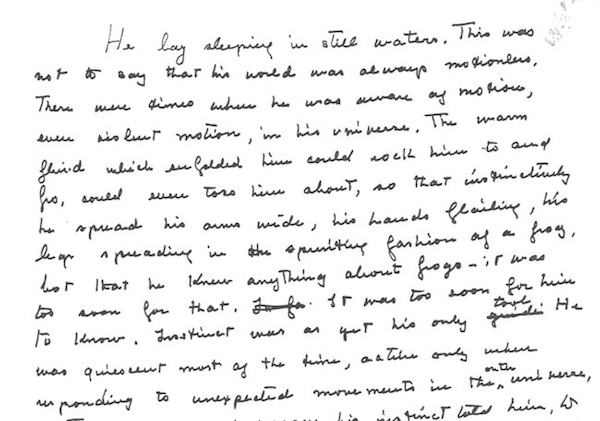 He lay sleeping in still waters. This was
not to say that his world was always motionless.
There were times when he was aware of motion,
even violent motion, in his universe. The warm
fluid which enfolded him could rock him to and
fro, could even toss him about, so that instinctively
he spread his arms wide, his hands flailing, his
legs spreading in the sprinting fashion of a frog.
Not that he knew anything about frogs – it was
too soon for that. It was too soon for him
to know. Instinct was as yet his only tool. He
was quiescent most of the time, active only when
responding to unexpected movements in the outer universe,
his instinct told him,